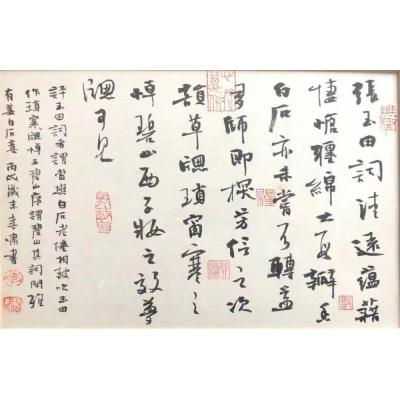 張玉田詞清遠蘊藉
悽愴纏綿大段瓣香
白石亦未嘗不轉益
多師即探芳信之次
韻草牕瑣窗寒之
悼碧山西子妝之效夢
牕可見
評玉田詞者謂當與白石老僊相鼓吹玉田
作瑣寒牕悼王碧山序謂碧山其詞閑雅
有姜白石意 丙戌歲末 李書